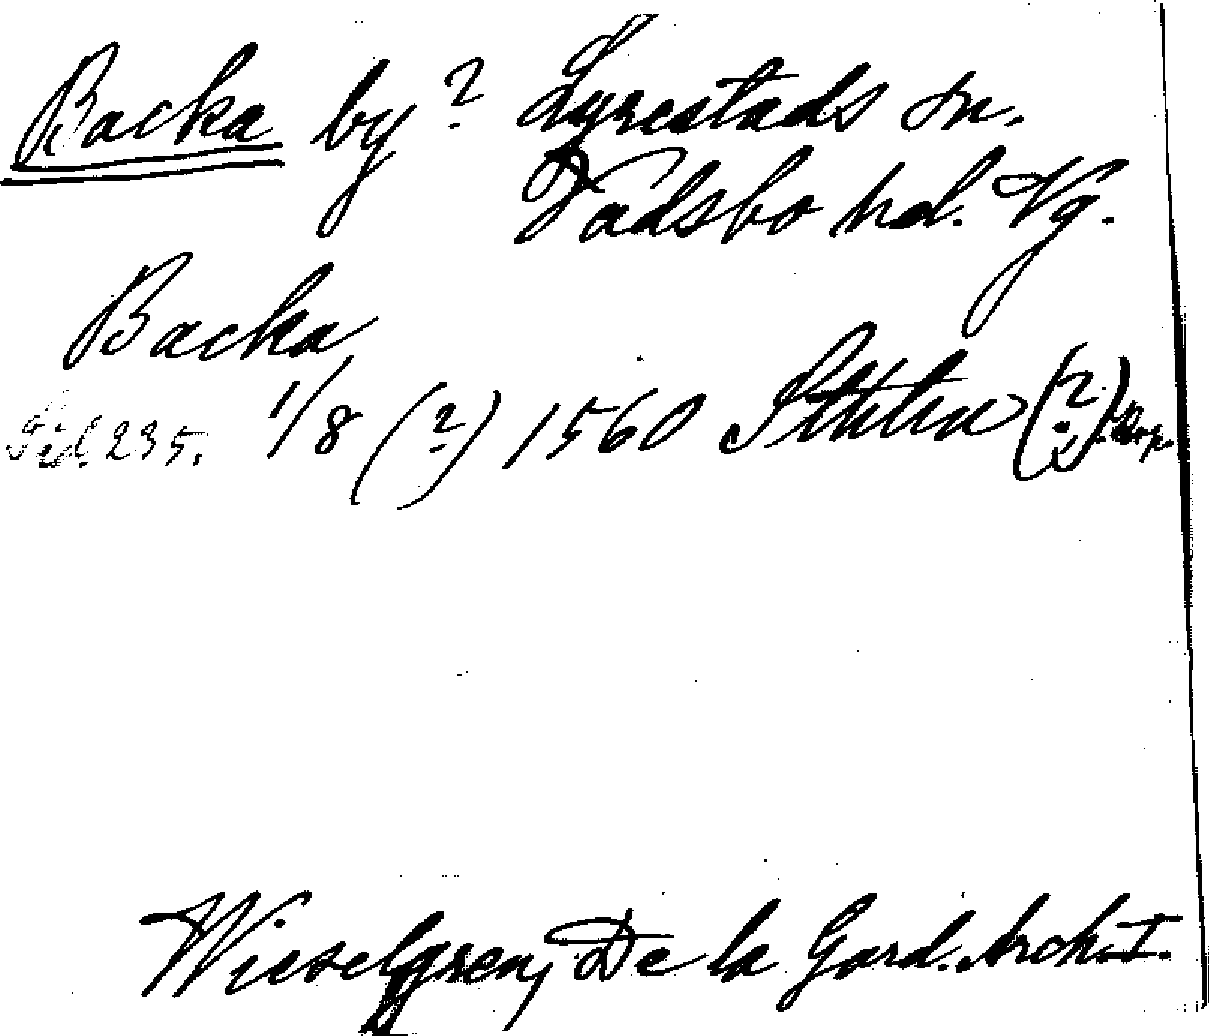 Backa by? Lyrestads sn.
Vadsbo hd. Vg.
Backa
Sid. 235. 1/8 (?) 1560 (?)
Wieselgren, De la Gard. Arch. I.